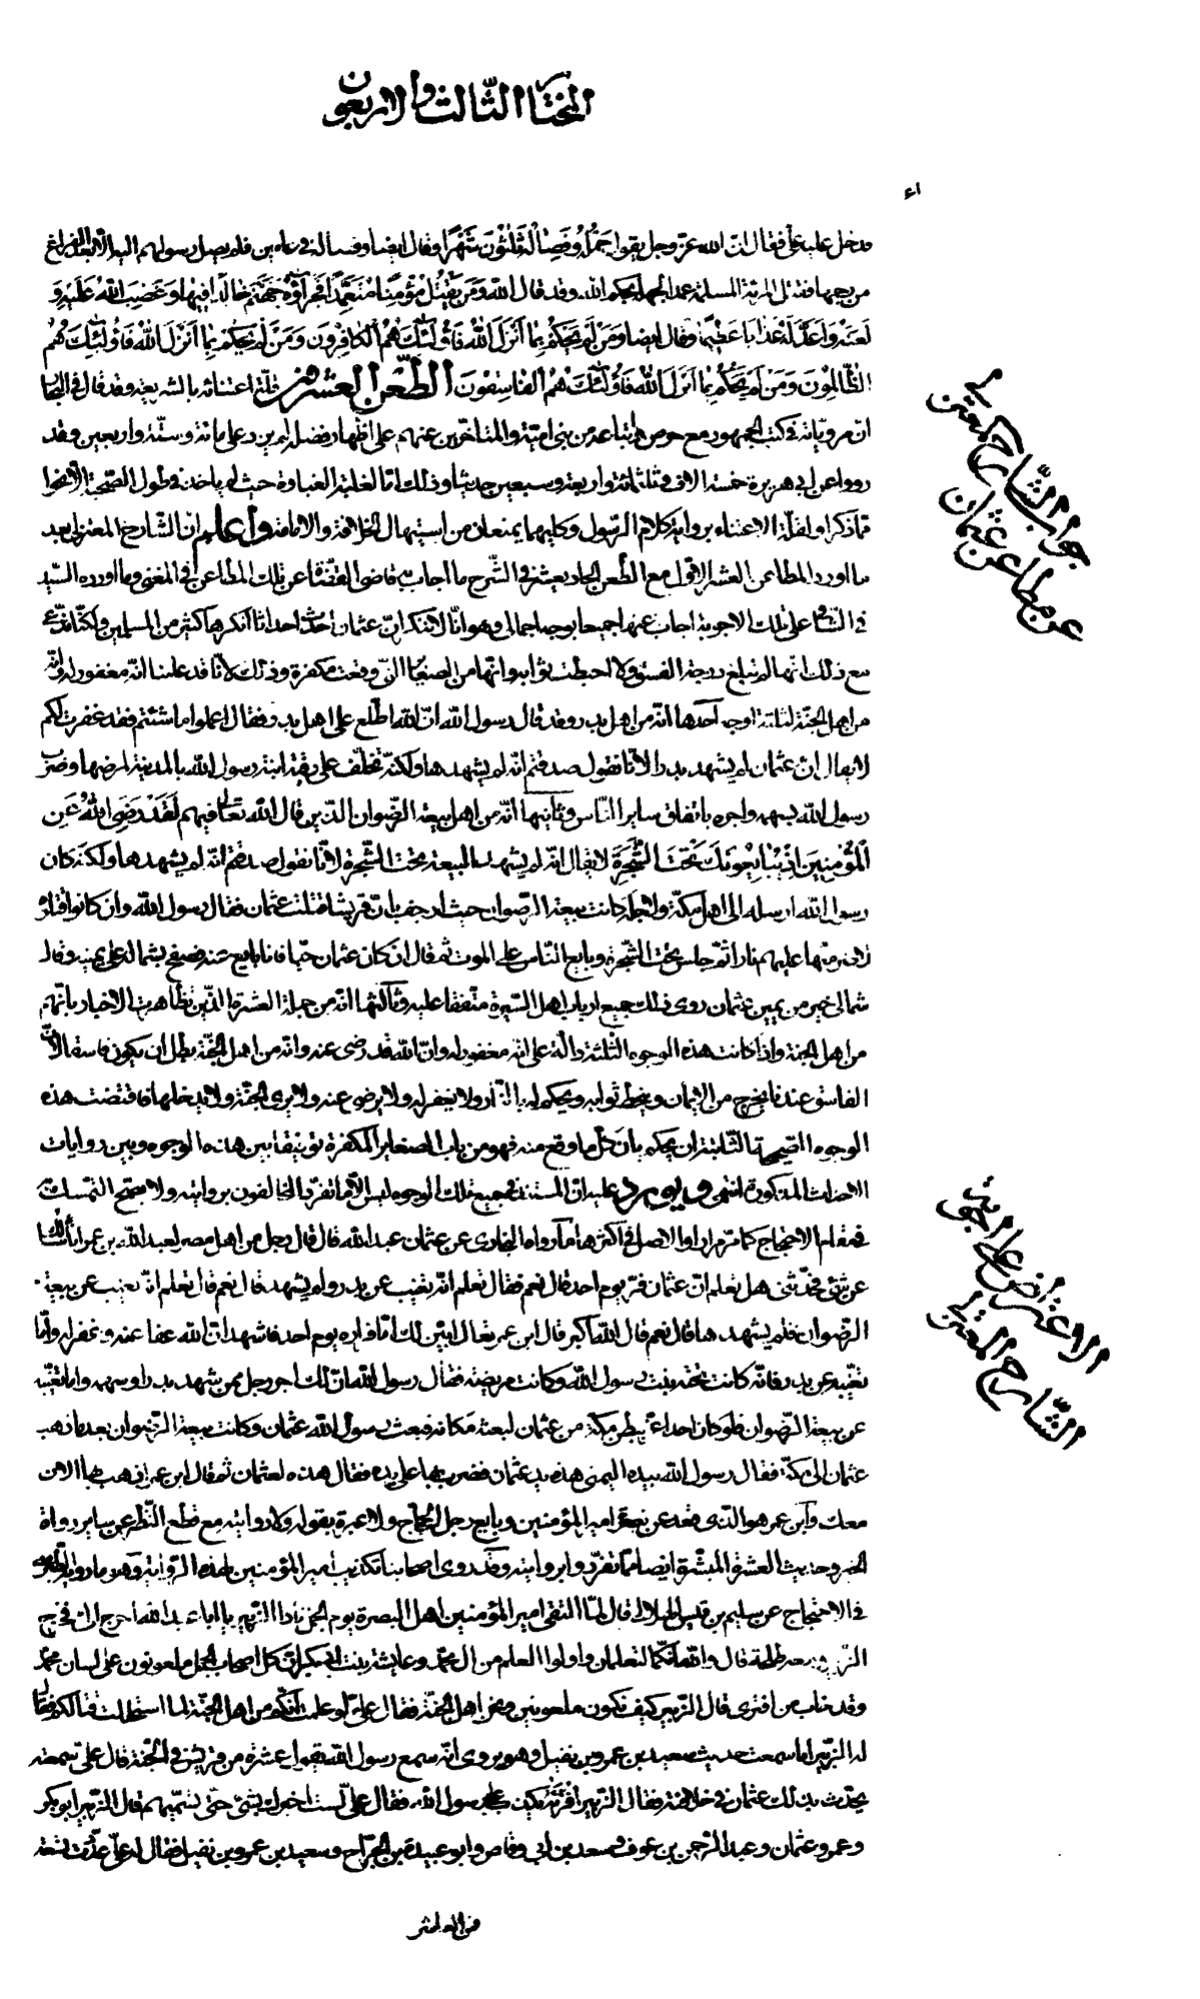 المختار الثالث والاربعون
فدخل عليه علي فقال ان الله عز وجل يقول حَمْلُهُ وَفِصَالُهُ ثَلٰثُونَ شَهْرًا وقال ايضا وفصاله في عامين فلم يصل رسولهم اليه الا بعد الفراغ
من رجمها فقتل المرئة المسلمة عمدا لجهله بحكم الله وقد قال الله وَمَنْ يَقْتُلْ مُؤْمِنًا مُتَعَمِّدًا فَجَزَاؤُهُ جَهَنَّمُ خَالِدًا فِيهَا وَغَضِبَ اللهُ عَلَيْهِ وَ
لَعَنَهُ وَاَعَدَّ لَهُ عَذَابًا عَظِيمًا وقال ايضا وَمَنْ لَمْ يَحْكُمْ بِمَا اَنْزَلَ اللهُ فَاُولٰئِكَ هُمُ الْكَافِرُونَ وَمَنْ لَمْ يَحْكُمْ بِمَا اَنْزَلَ اللهُ فَاُولٰئِكَ هُمُ
الظَّالِمُونَ وَمَنْ لَمْ يَحْكُمْ بِمَا اَنْزَلَ اللهُ فَاُولٰئِكَ هُمُ الْفَاسِقُونَ الطّعن العشرون قلّة اعتنائه بالشريعة وقد قال في البحار
ان مروياته في كتب الجمهور مع حرص اتباعه من بني اميّة والمتأخرين عنهم على اظهار فضله لم يزد على مائة وستّة واربعين وقد
رووا عن ابي هريرة خمسة الاف وثلثمائة واربعة وسبعين حديثا وذلك امّا لغلبة الغباوة حيث لم ياخذ في طول الصّحبة الا نحوا
ممّا ذكر او لقلّة الاعتناء برواية كلام الرّسول وكليهما يمنعان من استيهال الخلافة والامامة واعلم ان الشّارح المعتزلي بعد
ما اورد المطاعن العشر الاول مع المطعن الحاديعشر في الشّرح ما اجاب به قاضي القضاة عن تلك المطاعن في المغني وما اورده السّيد
في الشّافي على تلك الاجوبة اجاب عنها جميعا بوجه اجمالي وهو انّا لا ننكر انّ عثمان احدث احداثا انكرها كثير من المسلمين ولكنّا ندّعي
مع ذلك انّها لم تبلغ درجة الفسق ولا احبطت ثوابه وانّها من الصغاير الّتي وقعت مكفرة وذلك لانّا قد علمنا انّه مغفور له وانّه
من اهل الجنّة لثلثة اوجه احدها انّه من اهل بدر وقد قال رسول الله انّ الله اطّلع على اهل بدر وفقال اعملوا ما شئتم فقد غفرت لكم
لا يقال انّ عثمان لم يشهد بدرا لانّا نقول صدقتم انّه لم يشهدها ولكنّه تخلّف على رقيّة ابنة رسول الله بالمدينة لمرضها وضرب
رسول الله بسهمه واجره باتفاق ساير النّاس وثانيها انّه من اهل بيعة الرّضوان الذّين قال الله تعالى فيهم لَقَدْ رَضِيَ اللهُ عَنِ
الْمُؤْمِنِينَ اِذْ يُبَايِعُونَكَ تَحْتَ الشَّجَرَةِ لا يقال انّه لم يشهد البيعة تحت الشّجرة لانّا نقول صدقتم انّه لم يشهدها ولكنه كان
رسول الله ارسله الى اهل مكّة ولاجله كانت بيعة الرّضوان حيث ارجف بان قريشا قتلت عثمان فقال رسول الله وان كانوا قتلوه
لاضرمنّها عليهم نارا ثمّ جلس تحت الشّجرة وبايع النّاس على الموت ثم قال ان كان عثمان حيّا فانا ابايع عنه فصفح بشماله على يمينه وقال
شمالي خير من يمين عثمان روى ذلك جميع ارباب اهل السّيرة متّفقا عليه وثالثها انّه من جملة العشرة الّذين تظاهرت الاخبار بانّهم
من اهل الجنّة واذا كانت هذه الوجوه الثّلثة دالّة على انّه مغفور له وانّ الله قد رضى عنه وانّه من اهل الجنّة بطل ان يكون فاسقا لانّ
الفاسق عندنا يخرج من الايمان ويحبط ثوابه ويحكم له بالنّار ولا يغفر له ولا يرضى عنه ولا يرى الجنّة ولا يدخلها فاقتضت هذه
الوجوه الصّحيحة الثّابتة ان يحكم بان كلّ ما وقع منه فهو من باب الصغاير المكفرة توفيقا بين هذه الوجوه وبين روايات
الاحداث المذكورة انتهى ويورد عليه انّ المستند في جميع تلك الوجوه ليس الّا ما تفرّد المخالفون بروايته ولا يصحّ التمسّك به
في مقام الاحتجاج كما مرّ مرارا والاصل في اكثرها ما رواه البخاري عن عثمان بن عبد الله قال قال رجل من اهل مصر لعبد الله بن عمر اني سائلك
عن شئ فحدّثني هل تعلم انّ عثمان فرّ يوم احد قال نعم فقال تعلم انّه تغيّب عن بدر ولم يشهد قال نعم قال تعلم انّه تغيّب عن بيعة
الرّضوان فلم يشهدها قال نعم قال الله اكبر قال ابن عمر تعال ابيّن لك امّا فراره يوم احد فاشهد انّ الله عفا عنه وغفر له وامّا
تغيّبه عن بدر فانّه كانت تحته بنت رسول الله وكانت مريضة فقال رسول الله انّ لك اجر رجل ممن شهد بدرا وسهمه وامّا تغيّبه
عن بيعة الرّضوان فلو كان احد اعزّ ببطن مكّة من عثمان لبعثه مكانه فبعث رسول الله عثمان وكانت بيعة الرّضوان بعد ما ذهب
عثمان الى مكّة فقال رسول الله بيده اليمنى هذه يد عثمان فضرب بها على يده فقال هذه لعثمان ثم قال ابن عمر اذهب بها الان
معك وابن عمر هو الّذي قعد عن بيعة امير المؤمنين وبايع رجل الحجّاج ولا عبرة بقوله ولا روايته مع قطع النّظر عن ساير رواة
الخبر وحديث العشرة المبشّرة ايضا ممّا تفرّدوا بروايته وقد روى اصحابنا تكذيب امير المؤمنين لهذه الرّواية وهو ما رواه الطبرسي
في الاحتجاج عن سليم بن قيس الهلالي قال لمّا التقى امير المؤمنين اهل البصرة يوم الجمل نادا الزّبير يا ابا عبد الله اخرج اليّ فخرج
الزّبير ومعه طلحة قال والله انّكما لتعلمان واولوا العلم من ال محمّد وعايشة بنت ابي بكر انّ كل اصحاب الجمل ملعونون على لسان محمّد
وقد خاب من افترى قال الزّبير كيف نكون ملعونين ونحن اهل الجنّة فقال عليّ لو علمت انّكم من اهل الجنّة لما استحللت قتالكم فقال
له الزّبير اما سمعت حديث سعيد بن عمرو بن نفيل وهو يروى انّه سمع رسول الله يقول عشرة من قريش في الجنّة قال علي سمعته
يحدّث بذلك عثمان في خلافته فقال الزّبير افتريه يكذب على رسول الله فقال عليّ لست اخبرك بشئ حتّى تسمّيهم قال الزّبير ابو بكر
وعمر وعثمان وعبد الرّحمن بن عوف وسعد بن ابي وقاص وابو عبيدة بن الجرّاح وسعيد بن عمرو بن نفيل فقال له عليّ عدّدت تسعة
فمن العاشر
جواب الشّارح المعتزلي
عن مطاعن عثمان
الاعتراض على اجوبة
الشّارح المعتزلي